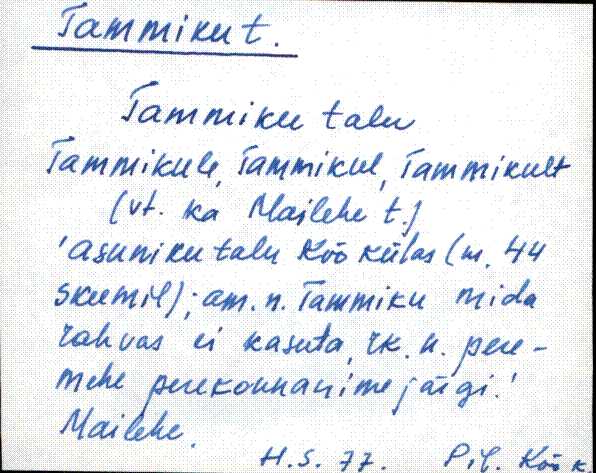 Tammiku t.
Tammiku talu
Tammikule, Tammikul, Tammikult
(vt. ka Mailehe t.)
'asuniku talu Köo külas (nr. 44
skeemil); am. n. Tammiku mida
rahvas ei kasuta, rk. n. pere-
mehe perekonnanime järgi.'
Mailehe.
H.S. 77. Pil. Köo k.